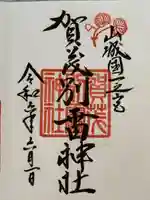 山城國一之宮
賀茂別雷神社
令和六年六月一日